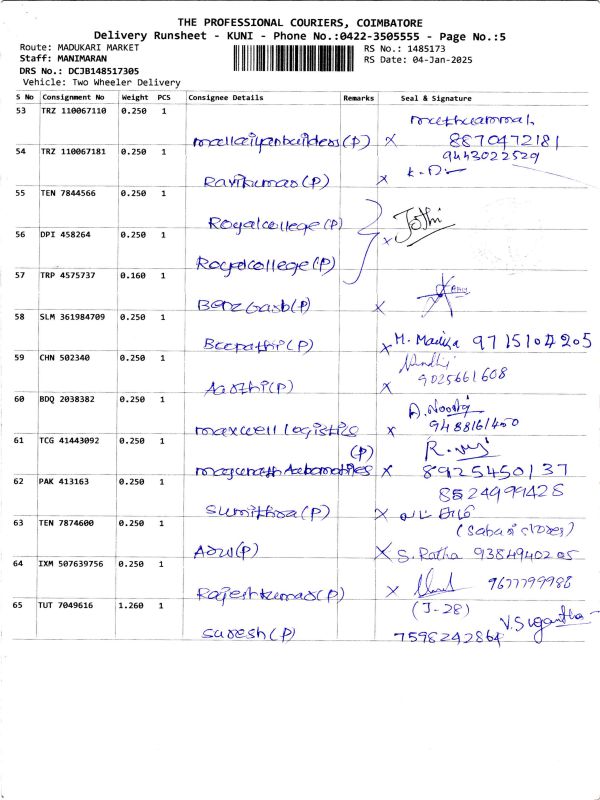 THE PROFESSIONAL COURIERS, COIMBATORE
Delivery Runsheet - KUNI - Phone No.:0422-3505555 - Page No.:5
Route: MADUKARI MARKET RS No.: 1485173
Staff: MANIMARAN RS Date: 04-Jan-2025
DRS No.: DCJB148517305
Vehicle: Two Wheeler Delivery
S No Consignment No Weight PCS Consignee Details Remarks Seal & Signature
53 TRZ 110067110 0.250 1
8870472181
54 TRZ 110067181 0.250 1 9443022529
Ravikumar(P) x
55 TEN 7844566 0.250 1
Royalcollege(P) Jothi
56 DPI 458264 0.250 1 x
Royalcollege(P)
57 TRP 4575737 0.160 1
x
58 SLM 361984709 0.250 1
x 9715104205
59 CHN 502340 0.250 1
9025661608
Aarthi(P) x
60 BDQ 2038382 0.250 1
9488161400
maxwell logistics (P) x
61 TCG 41443092 0.250 1
x 8925450137
62 PAK 413163 0.250 1 8524999428
Sumithra(P) x
63 TEN 7874600 0.250 1
x S. Ratha 9384940205
64 IXM 507639756 0.250 1
9677799988
Rajeshkumar(P) x
65 TUT 7049616 1.260 1 (J-28)
V.Sugantha
Suresh(P) 7598242864